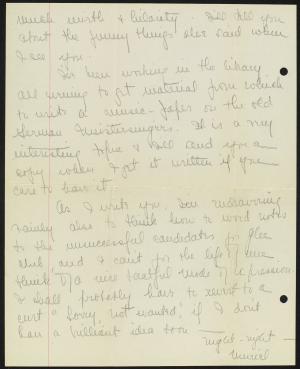 much mirth & hilarity. I'll tell you
about the funny things she said when
I see you.
I've been working in the library
all evening to get material from which
to write a music-paper on the old
German Meistersingers. It is a very
interesting topic & I'll send you a
copy when I get it written if you
care to have it.
As I write you, I'm endeavoring
vainly also to think how to word notes
to the unsuccessful candidates for glee
club, and I can't for the life of me
think of a nice tactful mode of expression.
I shall probably have to resort to a
curt "Sorry, not wanted," if I don't
have a brilliant idea soon —
Night-night —
Muriel